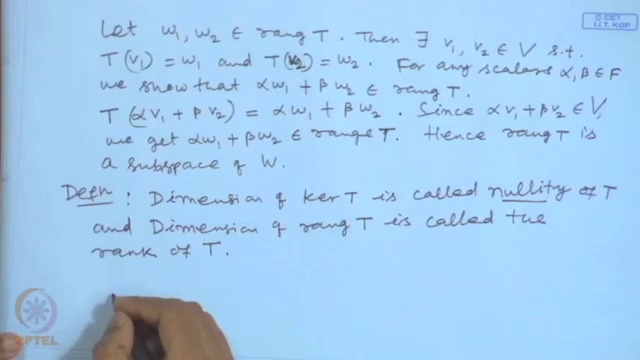 © CET
I.I.T. KGP
Let w₁, w₂ ∈ rang T. Then ∃ v₁, v₂ ∈ V s.t.
T(v₁) = w₁ and T(v₂) = w₂. For any scalars α, β ∈ F
we show that αw₁ + βw₂ ∈ rang T.
T(αv₁ + βv₂) = αw₁ + βw₂. Since αv₁ + βv₂ ∈ V,
we get αw₁ + βw₂ ∈ range T. Hence rang T is
a subspace of W.
Defn: Dimension of ker T is called nullity of T
and Dimension of rang T is called the
rank of T.
NPTEL